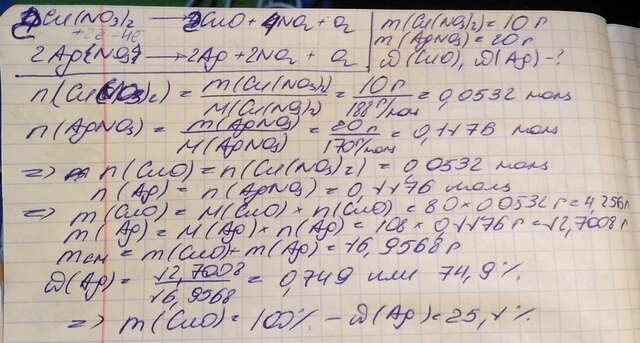 2Cu(NO₃)₂ → 2CuO + 4NO₂ + O₂
+2e -4e
2AgNO₃ → 2Ag + 2NO₂ + O₂
m(Cu(NO₃)₂) = 10 г
m(AgNO₃) = 20 г
ω(CuO), ω(Ag) - ?
n(Cu(NO₃)₂) = m(Cu(NO₃)₂) / M(Cu(NO₃)₂) = 10 г / 188 г/моль = 0,0532 моль
n(AgNO₃) = m(AgNO₃) / M(AgNO₃) = 20 г / 170 г/моль = 0,1176 моль
=> n(CuO) = n(Cu(NO₃)₂) = 0,0532 моль
n(Ag) = n(AgNO₃) = 0,1176 моль
=> m(CuO) = M(CuO) × n(CuO) = 80 × 0,0532 г = 4,256 г
m(Ag) = M(Ag) × n(Ag) = 108 × 0,1176 г = 12,7008 г
mсм = m(CuO) + m(Ag) = 16,9568 г
ω(Ag) = 12,7008 / 16,9568 = 0,749 или 74,9 %
=> m(CuO) = 100% - ω(Ag) = 25,1 %